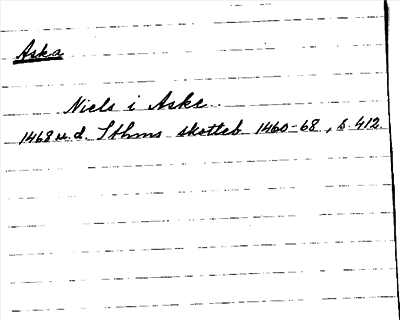 Aska
Niels i Aske.
1468 u.d. Sthms skotteb 1460-68, s. 412.